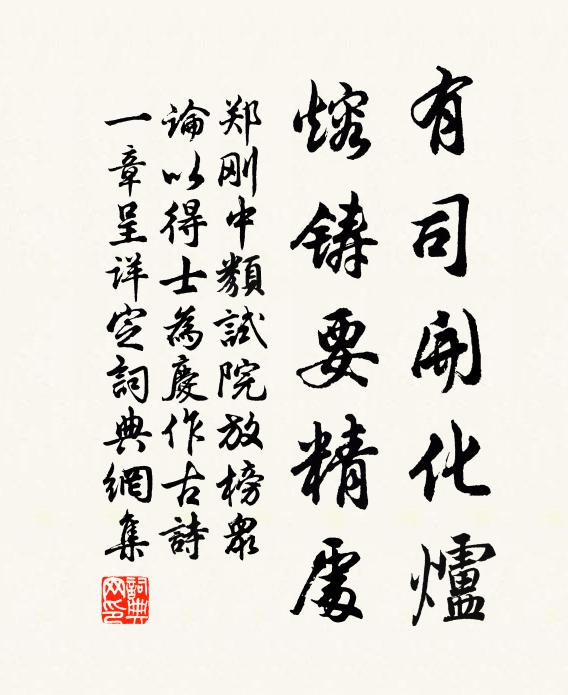 有司開化爐
熔鑄要精處
郑刚中類試院放榜衆
論以得士為慶作古詩
一章呈详定詞典網集
詞典網印